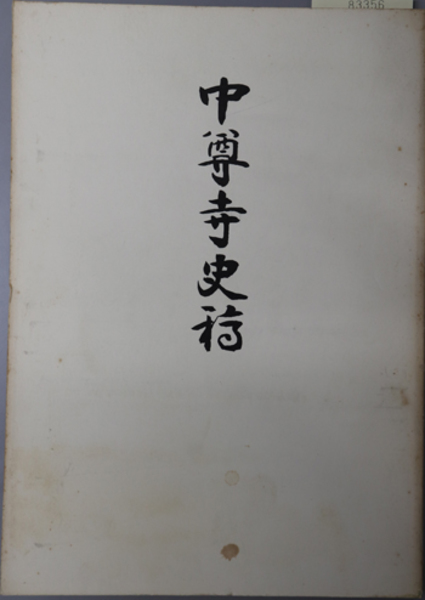 83356
中尊寺史稿